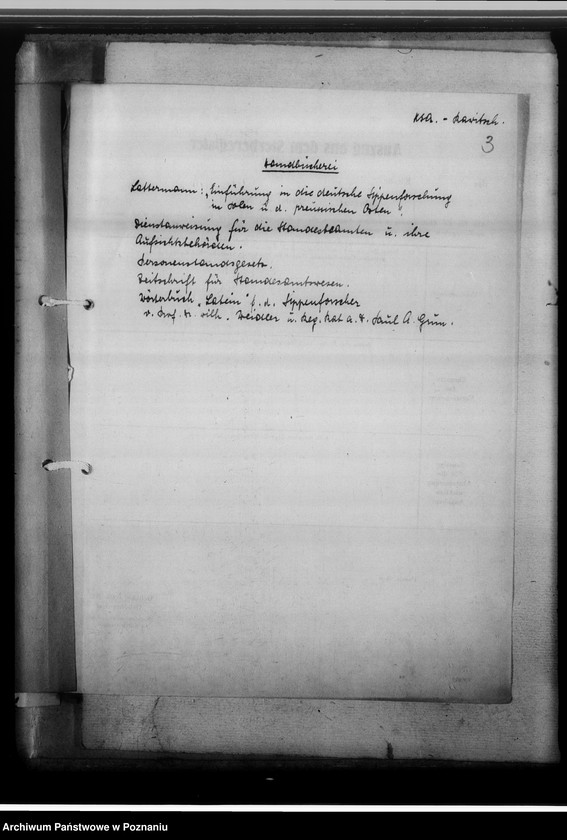 KSA. - Rawitsch.
3
Handbücherei
Lattermann: „Einführung in die deutsche Sippenforschung
in Polen u. d. preussischen Osten".
Dienstanweisung für die Standesbeamten u. ihre
Aufsichtsbehörden.
Personenstandsgesetz.
Zeitschrift für Standesamtswesen.
Wörterbuch „Latein" f. d. Sippenforscher
v. Prof. Dr. Wilh. Weidler u. Reg. Rat a. D. Paul A. Grun.
Archiwum Państwowe w Poznaniu